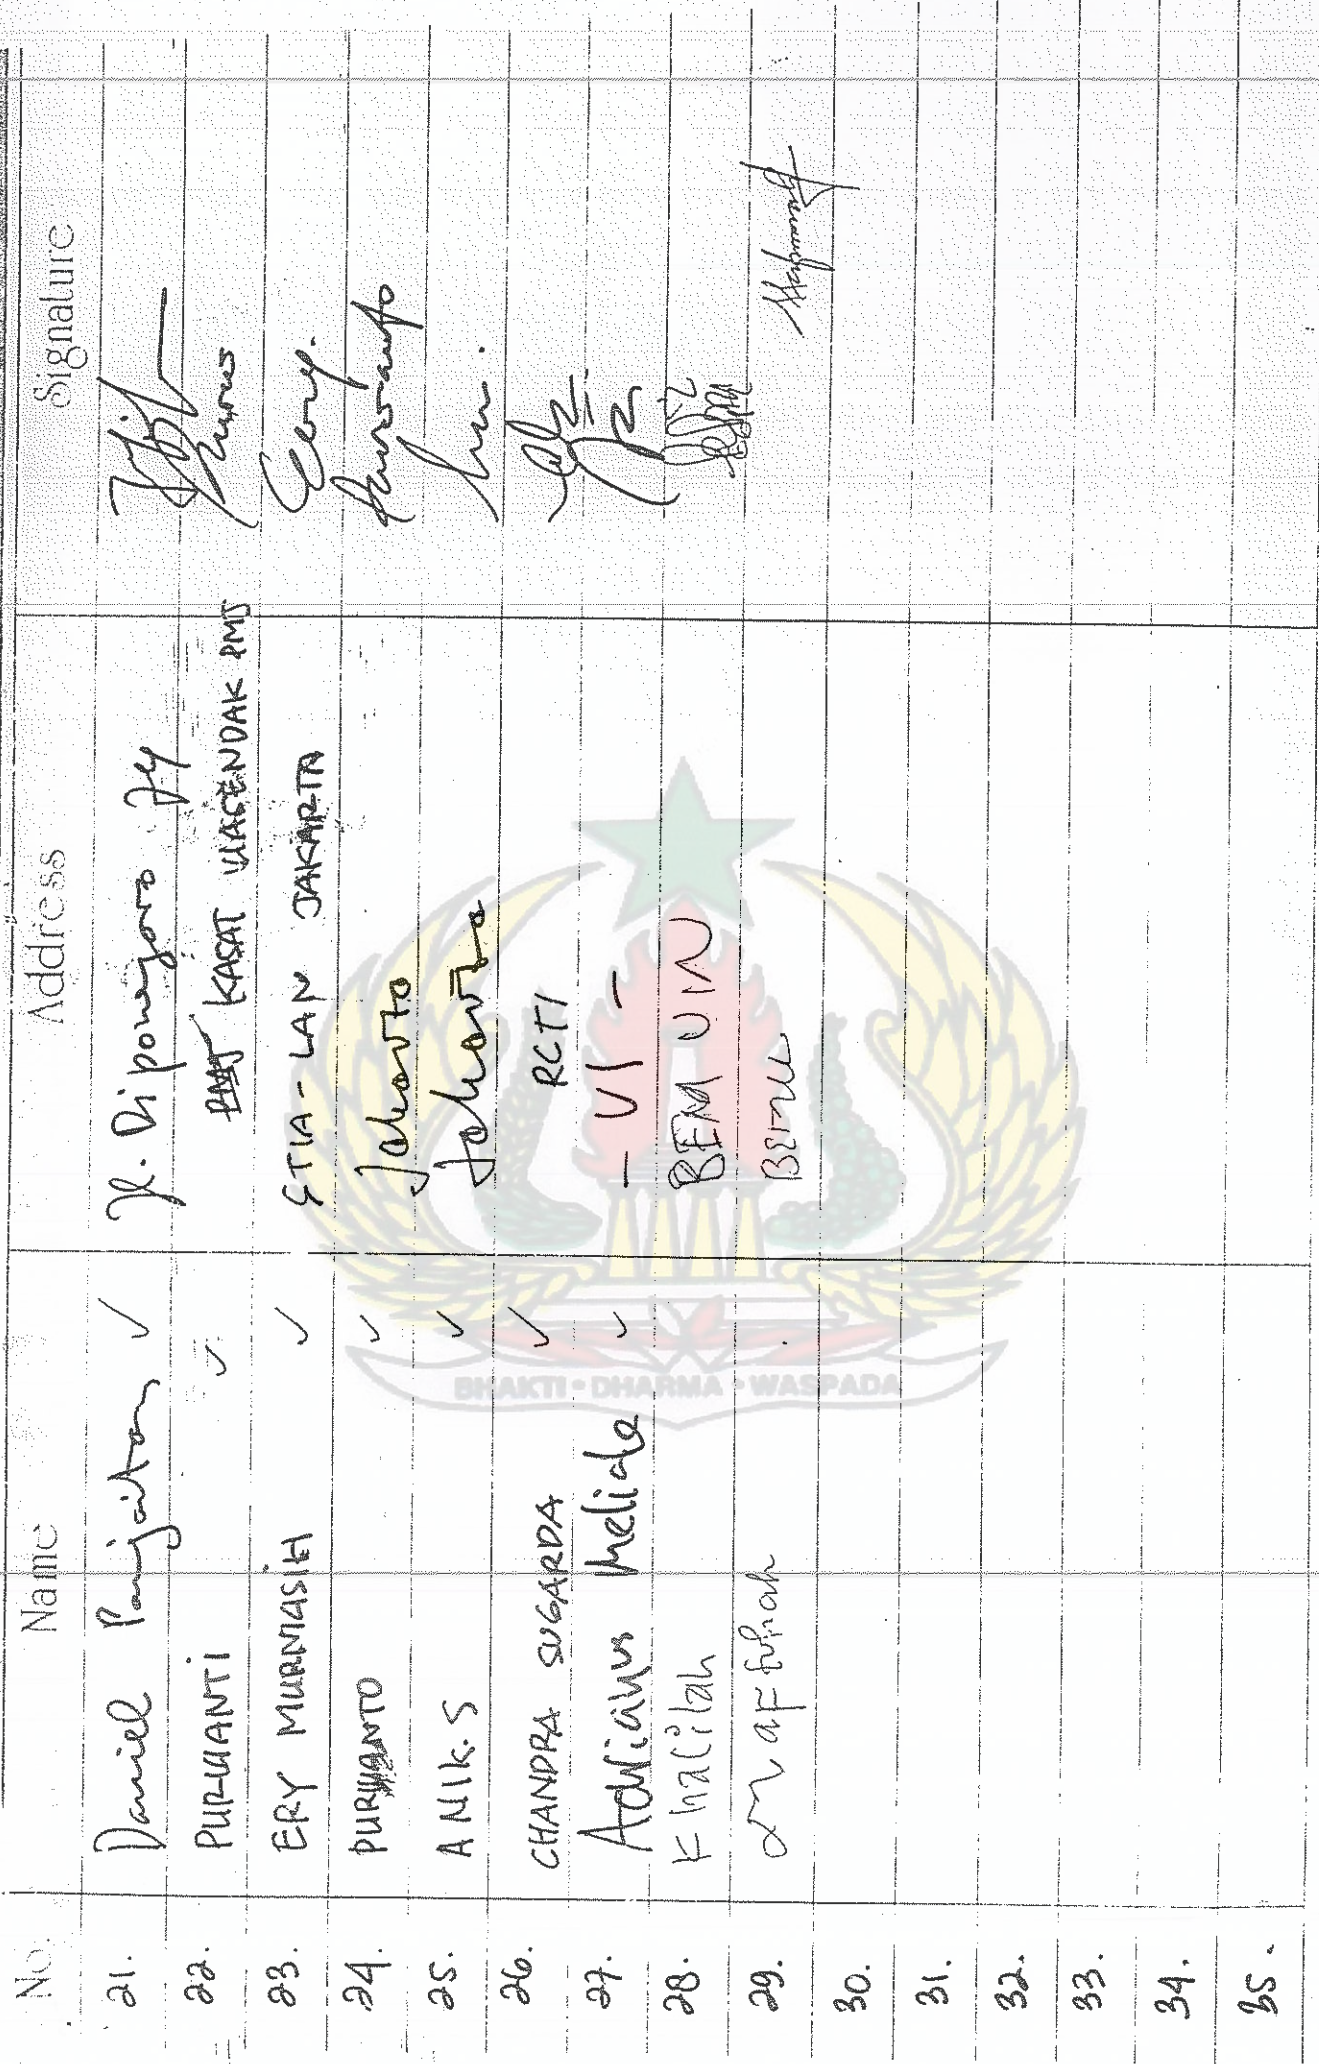 No. Name Address Signature
21. Daniel Panjaitan ✓ Jl. Diponegoro 74
22. PURWANTI ✓ KASAT WAGENDAK PMJ
23. ERY MURNIASIH ✓ STIA-LAN JAKARTA
24. PURWANTO ✓ Jakarta
25. ANIK.S ✓ Jakarta
26. CHANDRA SUGARDA ✓ RCTI
27. Adrianus Meliala ✓ - UI -
28. Khalilah BEM UIN
29.
30.
31.
32.
33.
34.
35.
BHAKTI • DHARMA • WASPADA